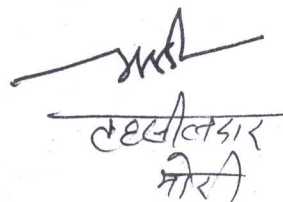 तहसीलदार
मोरी